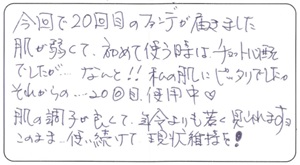 今回で20回目のファンデが届きました
肌が弱くて、初めて使う時は、チョット心配
でしたが… なんと!! 私の肌にピッタリでした
それからの…20回目、使用中♡
肌の調子が良くて、年令よりも若く見られます
このまま、使い続けて 現状維持を!